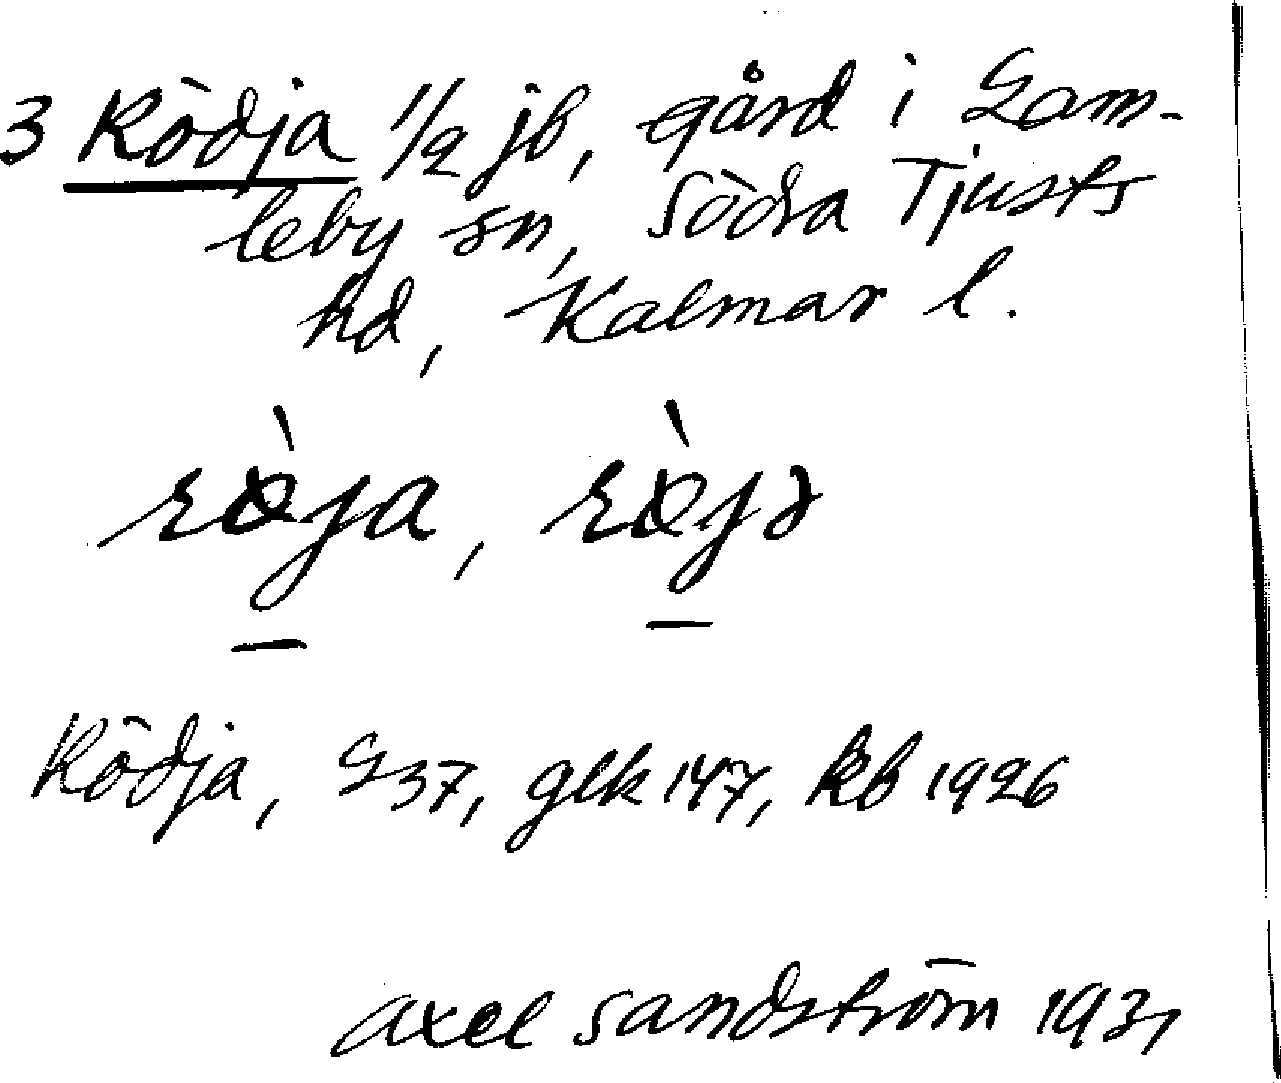 3 Rödja 1/2 jb, gård i Gam-
leby sn, Södra Tjusts
hd, Kalmar l.
rø̀ja, rø̀jə
Rödja, G37, glk 147, kb 1926
Axel Sandström 1931